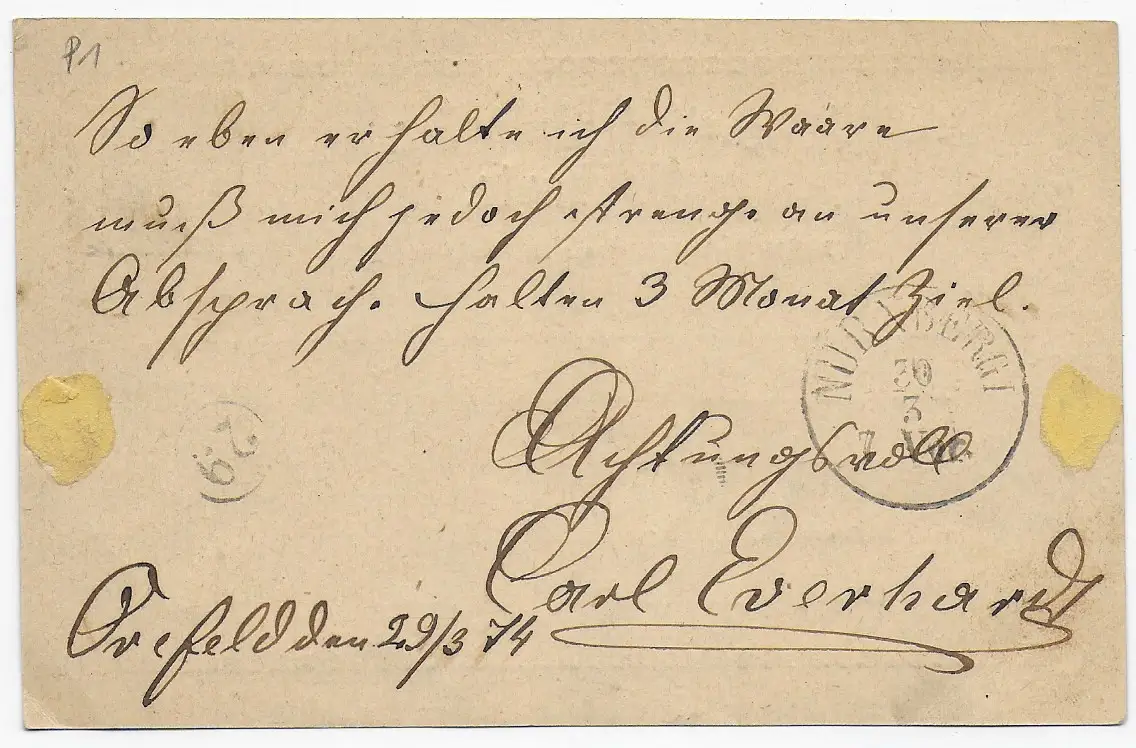 P1
So eben erhalte ich die Waare
muß mich jedoch strenge an unserer
Absprache halten 3 Monat Ziel.
NÜRNBERG I
30
3
Achtungsvoll
29
Carl Everhardt
Crefeld den 29/3 74